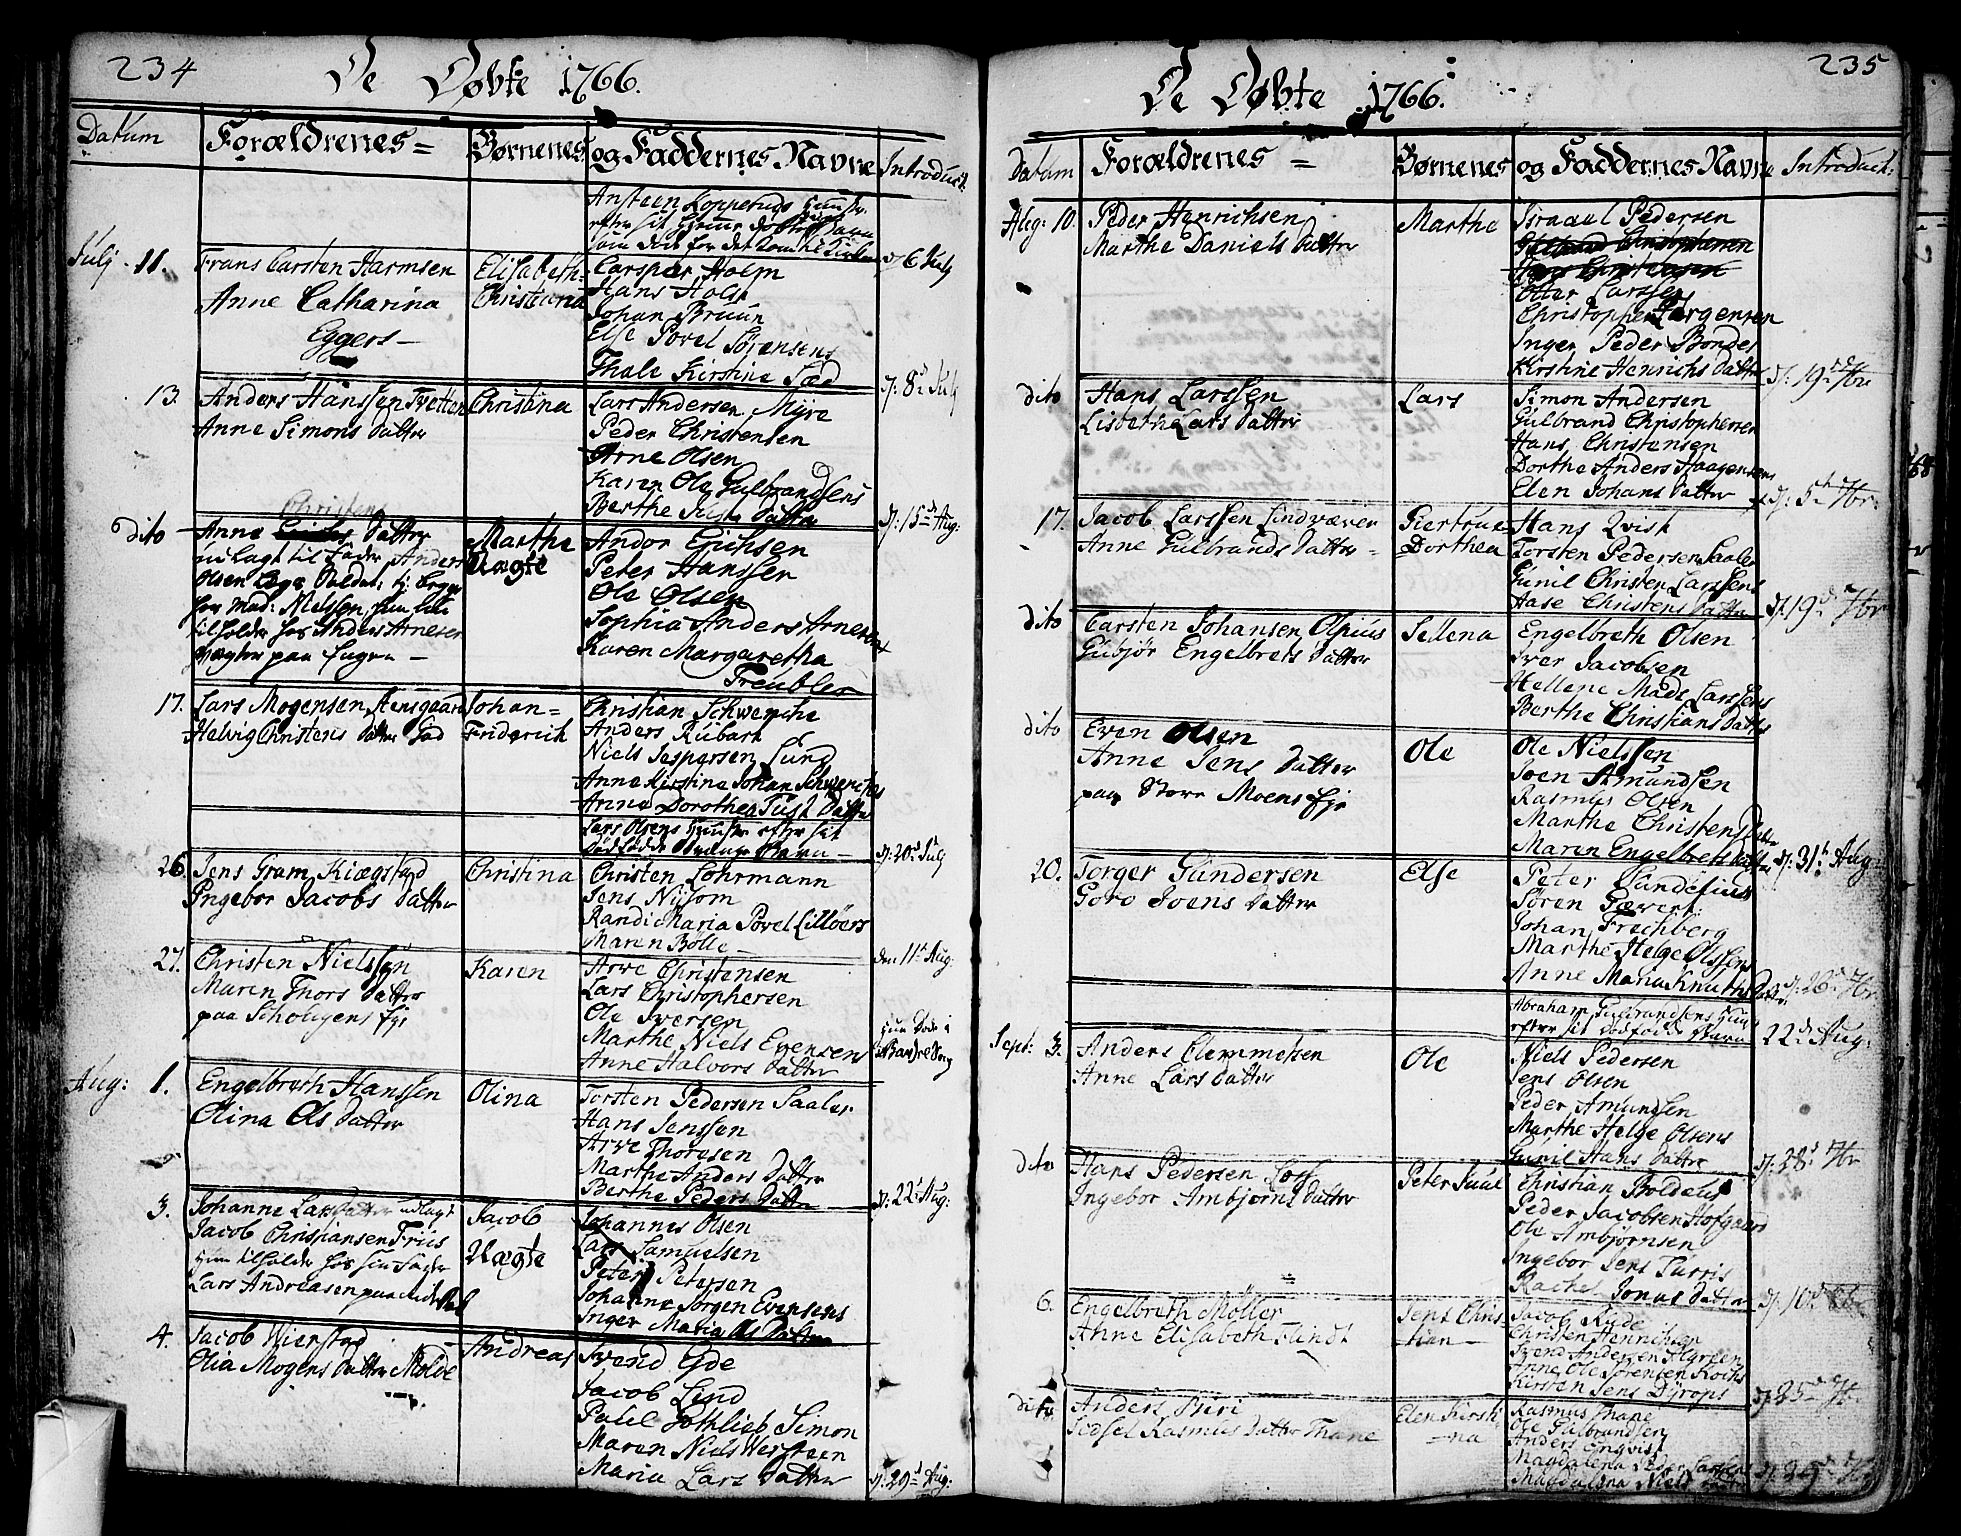 234
De Døbte 1766.
Datum Forældrenes = Børnenes og Faddernes Navne Introduct:
Ansteen Kopperuds
Julj 11. Frans Carsten Harmsen
Anne Catharina
Eggers
Elisabeth
Christiana
Carsper Holm
Hans Holst
Johan Bruun
Else Povel Sørensens
Thale Kirstine Sæd
13. Anders Hanssen Tvetten
Anne Simons Datter
Christina
Lars Andersen Myre
Peder Christensen
Arne Olsen
Karen Ole Gulbrandsens
Berthe Datter
d. 8de Julj
dito Christens
Anne Datter
udlagt til Fader Anders
Olsen
for Mad: Nielssen, hun
tilholder hos Anders Arnesen
paa
Marthe
Uægte
Andor Erichsen
Peter Hanssen
Ole Olsen
Sophia Anders Arnesens
Karen Margaretha
Treubler
d. 15de Aug:
17. Lars Mogensen
Helvig Christens Datter
Johan
Friderich
Christian Schwencke
Anders Rubart
Niels Jespersen Lund
Anne Kirstine Johan Schwenckes
Anne Dorothea Datter
Lars Olsens Hustr: efter sit
Dødfødde Barn
d. 20de Julj
26. Jens Gram
Ingebor Jacobs Datter
Christina
Christen Lohrmann
Jens Nysom
Randi Maria Povel Lilløers
Maren Bølle
den 11te Aug:
27. Christen Nielssen
Maren Thors Datter
paa Scholigens Eje
Karen
Arve Christensen
Lars Christophersen
Ole Iversen
Marthe Niels Evensens
Anne Halvors Datter
Hun Døde i
Aug: 1. Engelbreth Hanssen
Olina Ols Datter
Olina
Torsten Pedersen Saaler
Hans Jenssen
Arve Thoresen
Marthe Anders Datter
Berthe Peders Datter
d. 22de Aug:
3. Johanne Lars Datter udlagt
Jacob Christiansen Friis
Hun tilholder hos sin Fader
Lars Andreasen paa
Jacob
Uægte
Johannes Olsen
Lars Samuelsen
Peter Petersen
Johanne Jørgen Evensens
Inger Maria Datter
4. Jacob Wierstad
Olia Mogens Datter Molde
Andreas
Svend Gde
Jacob Lind
Poul Gothlieb Simon
Maren Niels Wersteen
Maria Lars Datter
d. 29de Aug:
235
De Døbte 1766.
Datum Forældrenes = Børnenes og Faddernes Navne Introduct:
Aug: 10. Peder Henrichsen
Marthe Daniels Datter
Marthe
Israael Pedersen
Otter Larssen
Christopher Jørgensen
Inger Peder Bondes
Kirstine Henrichs Datter
d. 19de 7br:
dito Hans Larssen
Lisbethe Lars Datter
Lars
Simon Andersen
Gulbrand Christophersen
Hans Christensen
Dorthe Anders Haagensens
Elen Johans Datter
d. 5te 7br:
17. Jacob Larssen Lindværn
Anne Gulbrands Datter
Giertrue
Dorthea
Hans Qvist
Torsten Pedersen Saaler
Gunil Christen Larssens
Aase Christens Datter
d. 19de 7br:
dito Carsten Johansen Olpius
Gubjør Engelbrets Datter
Sellena
Engelbreth Olsen
Iver Jacobsen
Hellene Mads Larssens
Berthe Christians Datter
dito Even Olsen
Anne Jens Datter
paa Store Moens Eje
Ole
Ole Nielssen
Joen Amundsen
Rasmus Olsen
Marthe Christens Datter
Maren Engelbrets Datter
d. 31te Aug:
20. Torger Gundersen
Goro Joens Datter
Else
Peter Sandelius
Søren Gævert
Johan Frechberg
Marthe Helge Olssens
Anne Maria Knuths Datter
d. 26de 7br:
Abraham Gulbrandsens Hus:
efter sit Dødfødde Barn
22de Aug:
Sept: 3. Anders Clemmetsen
Anne Lars Datter
Ole
Niels Pedersen
Jens Olsen
Peder Amundsen
Marthe Helge Olsens
Gunil Hans Datter
d. 28de 7br
dito Hans Pedersen
Ingebor Ambjørns Datter
Peter Juul
Christian Boldeus
Peder Jacobsen Hofgaard
Ole Ambjørnsen
Ingebor Jens Turris
Rachel Jonas Datter
6. Engelbreth Møller
Anne Elisabeth Flindt
Jens Chris
tian
Jacob Ryde
Christen Henrichsen
Svend Andersen Algreen
Anne Ole Sørensen Kochs
Kirsten Jens Dyrops
d. 25de 7br
dito Anders Siri
Sidsel Rasmus Datter Thane
Elen Kirsti
na
Rasmus Thane
Ole Gulbrandsen
Anders Enqvist
Magdalena Peder Larssens
Magdalena Niels Datter